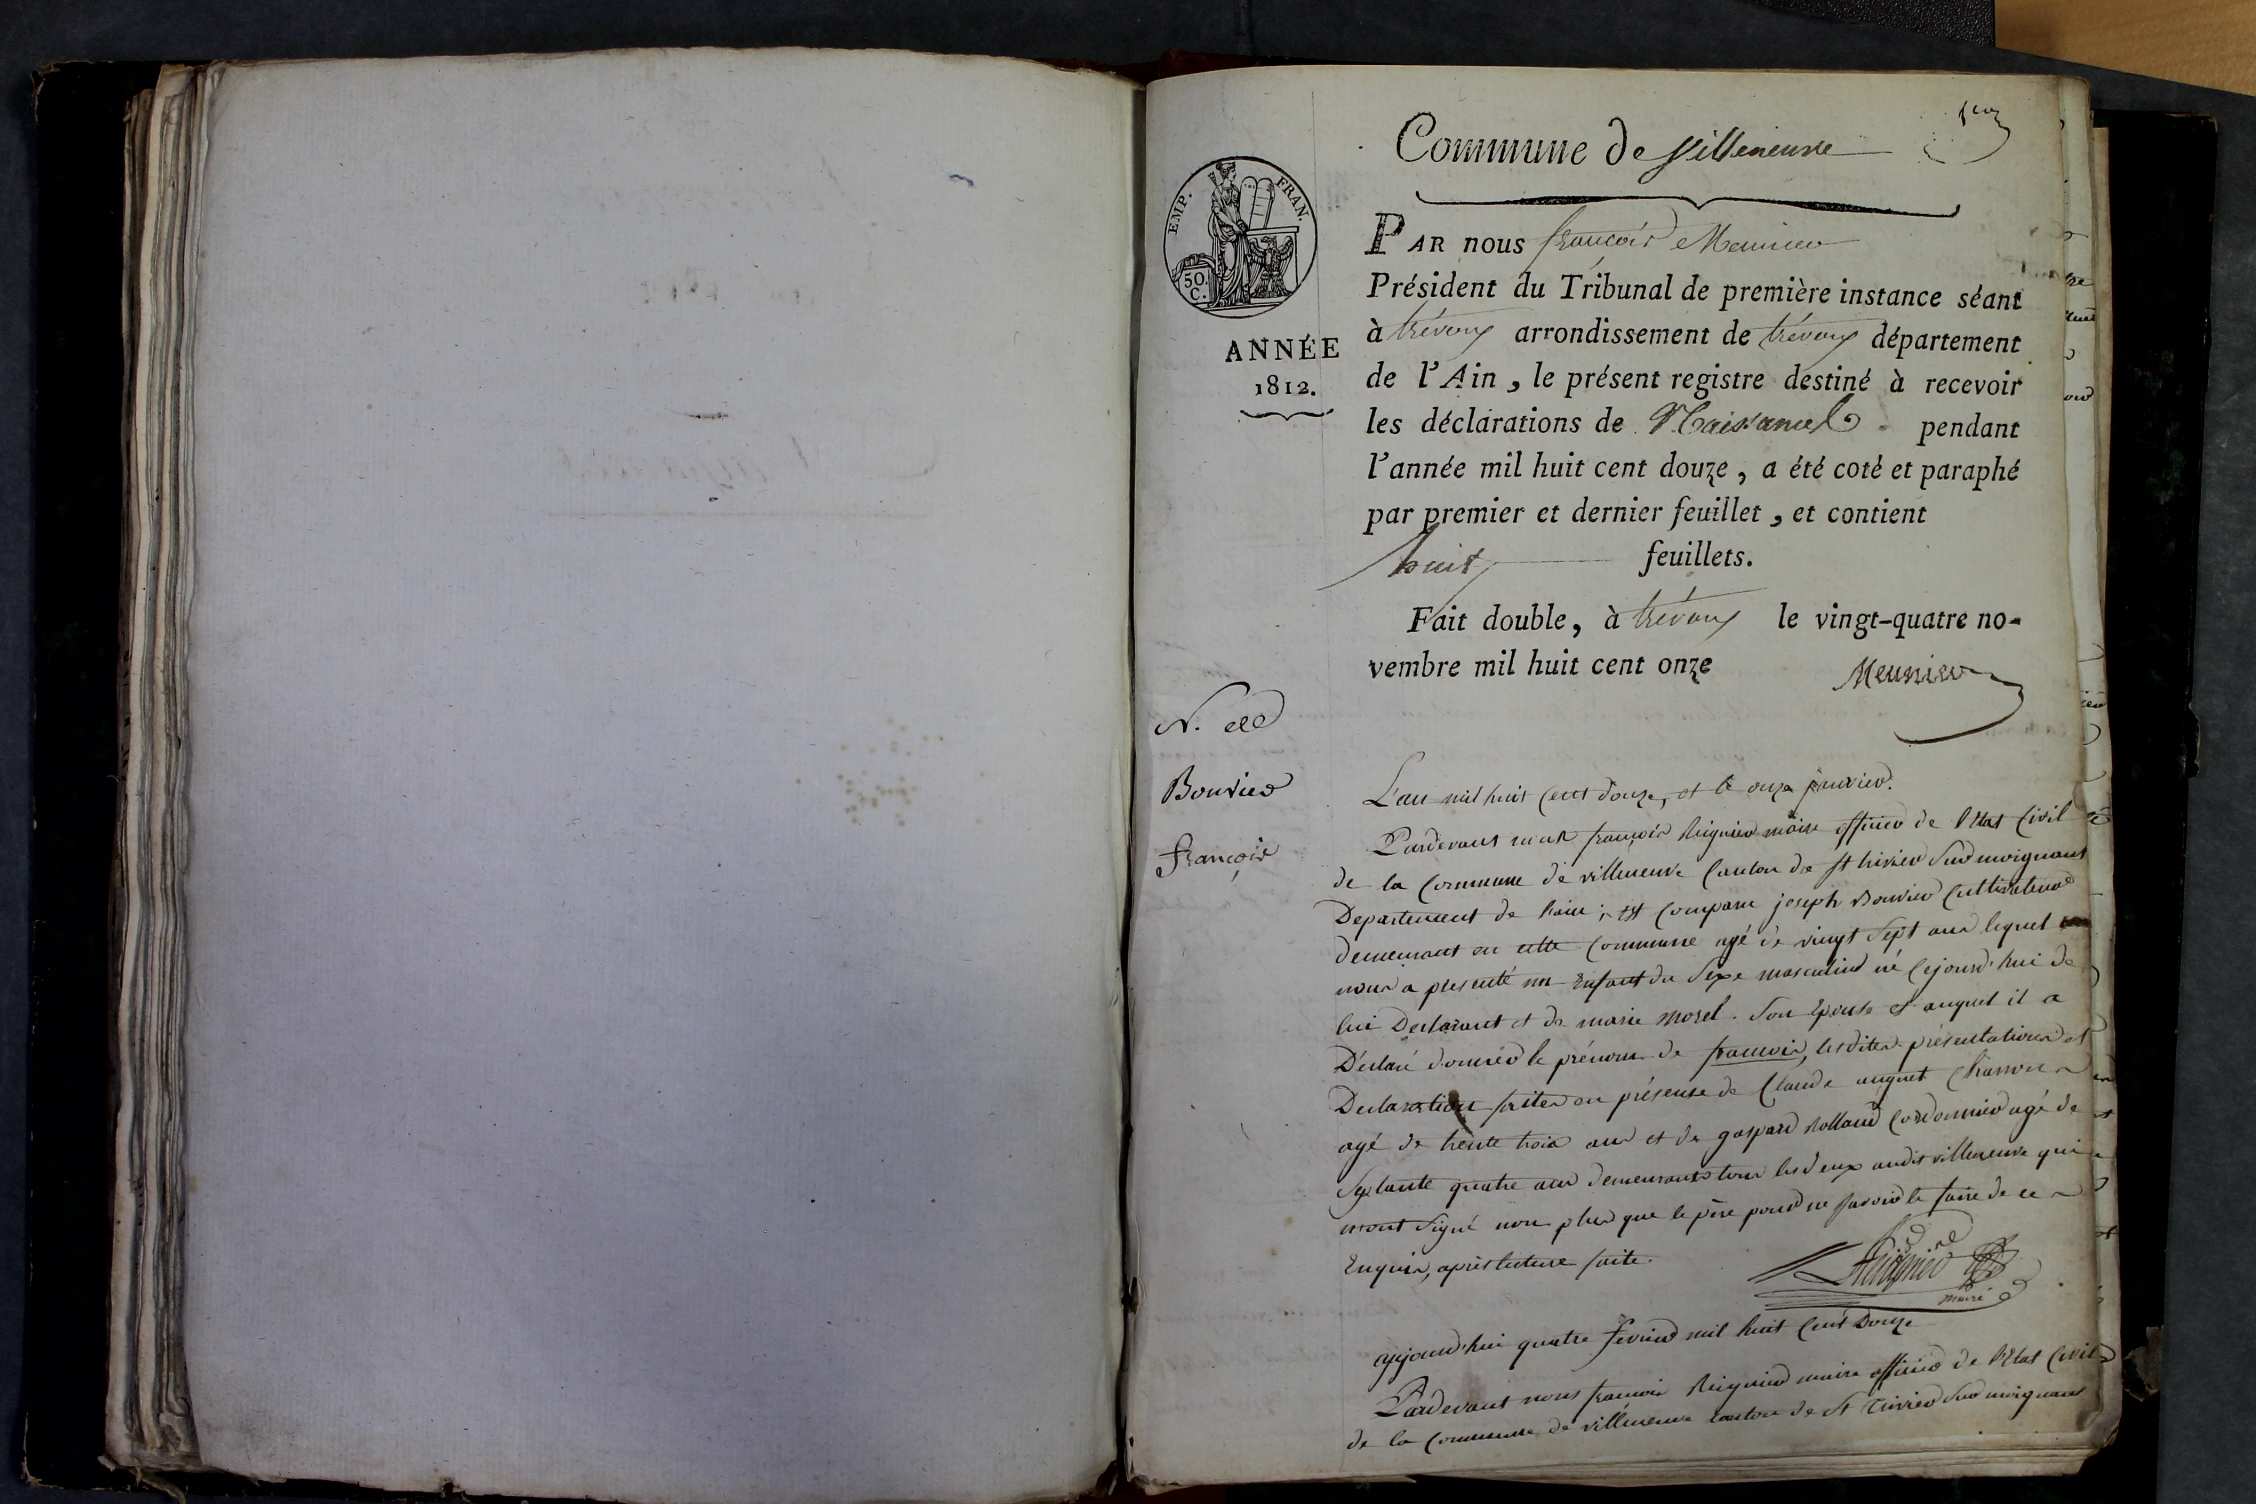 1er
Commune de Villeneuve
EMP. FRAN.
50. C.
ANNÉE
1812.
PAR nous françois Meunier
Président du Tribunal de première instance séant
à trévoux arrondissement de trévoux département
de l'Ain, le présent registre destiné à recevoir
les déclarations de Naissances pendant
l'année mil huit cent douze, a été coté et paraphé
par premier et dernier feuillet, et contient
huit feuillets.
Fait double, à trévoux le vingt-quatre no-
vembre mil huit cent onze
Meunier
N. de
Bouvier
françois
L'an mil huit Cent douze, et le onze janvier.
Pardevant nous françois Reignier maire officier de l'Etat Civil
de la Commune de villeneuve Canton de st trivier Sur moignans
Departement de l'ain; est Comparu joseph Bouvier Cultivateur
demeurant en cette Commune agé de vingt Sept ans lequel
nous a presenté un Enfant du Sexe masculin né Cejourd'hui de
lui Declarant et de marie morel Son Epouse et auquel il a
Déclaré donner le prénom de françois, lesdites présentation et
Declaration faites en présense de Claude auguet Charron
agé de trente trois ans et de gaspard Rolland Cordonnier agé de
Septante quatre ans demeurants tous les deux audit villeneuve qui
n'ont Signé non plus que le père pour ne Savoir le faire de ce
Enquis, après lecture faite.
Reignier
maire
Cejourd'hui quatre fevrier mil huit Cent Douze
Pardevant nous françois Reignier maire officier de l'Etat Civil
de la Commune de villeneuve Canton de St Trivier Sur moignans